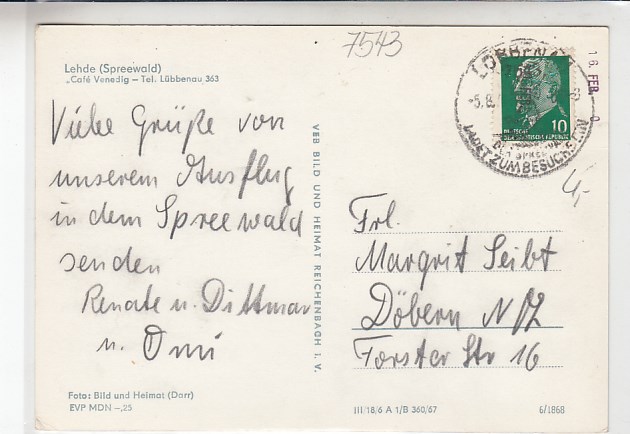 7543
Lehde (Spreewald)
„Café Venedig – Tel. Lübbenau 363
Viele Grüße von
unserem Ausflug
in dem Spreewald
senden
Renate u. Dittmar
u. Omi
Foto: Bild und Heimat (Darr)
EVP MDN –,25
VEB BILD UND HEIMAT REICHENBACH I. V.
LÜBBENAU
-5.8.
LADET ZUM BESUCH EIN
10
16. FEB.
4,-
Frl.
Margrit Seibt
Döbern N/L
Forster Str 16
III/18/6 A 1/B 360/67
6/1868